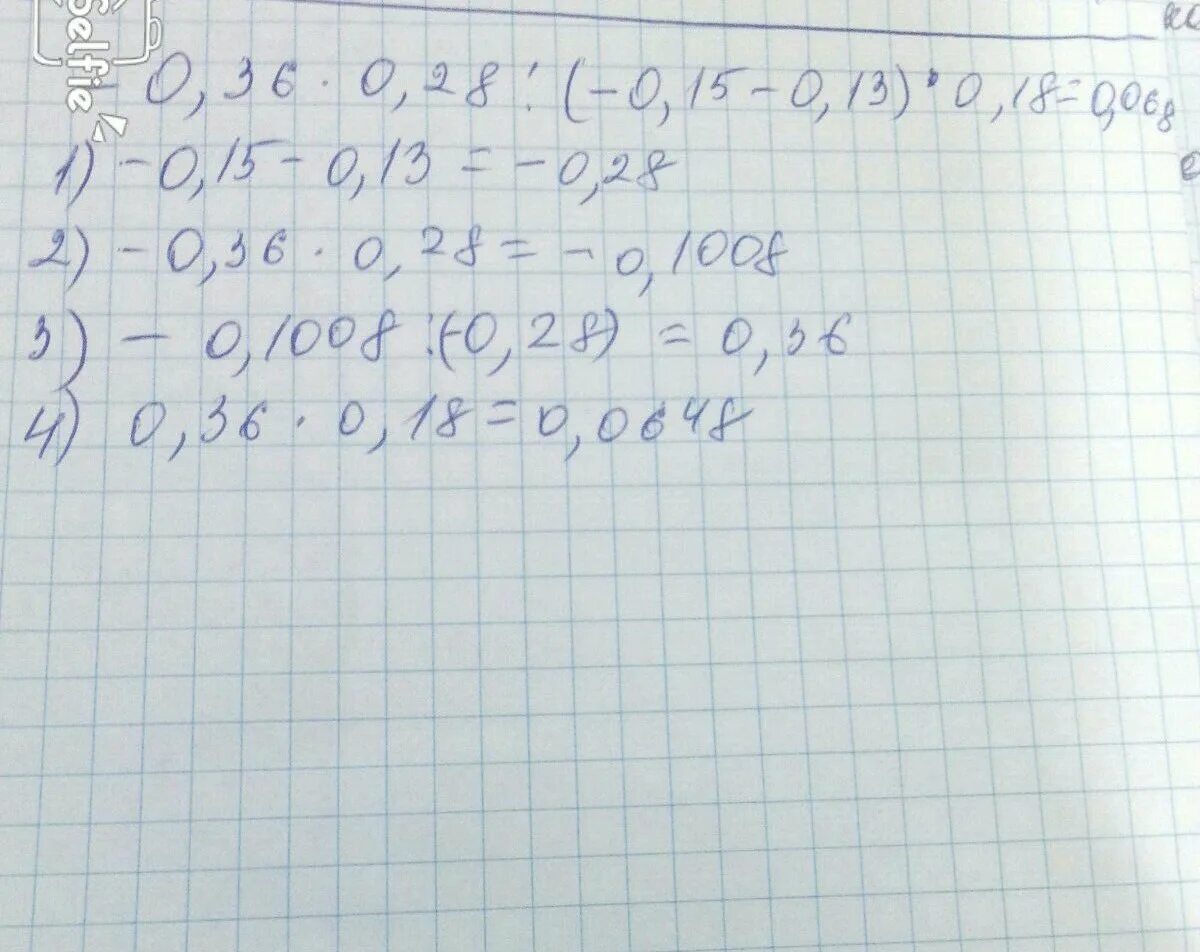 Selfie
- 0,36 · 0,28 : (-0,15 - 0,13) · 0,18 = 0,068
1) -0,15 - 0,13 = -0,28
2) -0,36 · 0,28 = -0,1008
3) -0,1008 : (-0,28) = 0,36
4) 0,36 · 0,18 = 0,0648